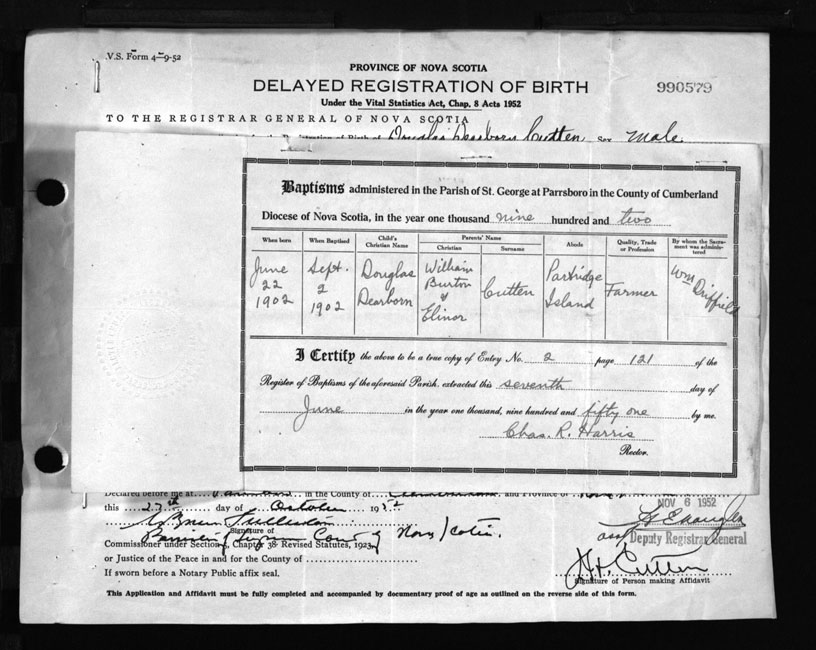 V.S. Form 4-9-52
PROVINCE OF NOVA SCOTIA
DELAYED REGISTRATION OF BIRTH
990579
Under the Vital Statistics Act, Chap. 8 Acts 1952
TO THE REGISTRAR GENERAL OF NOVA SCOTIA
Registration of Birth of Douglas Dearborn Cutten, Sex Male.
Baptisms administered in the Parish of St. George at Parrsboro in the County of Cumberland
Diocese of Nova Scotia, in the year one thousand nine hundred and two
When born
When Baptised
Child's Christian Name
Parents' Name
Christian
Surname
Abode
Quality, Trade or Profession
By whom the Sacrament was administered
June 22 1902
Sept. 2 1902
Douglas Dearborn
William Burton & Elinor
Cutten
Partridge Island
Farmer
Wm Driffield
I Certify the above to be a true copy of Entry No. 2 page 121 of the
Register of Baptisms of the aforesaid Parish, extracted this seventh day of
June in the year one thousand, nine hundred and fifty one by me.
Chas. R. Harris
Rector.
Declared before me at in the County of and Province of
this 27th day of October 1952
NOV 6 1952
Signature of
Deputy Registrar General
Commissioner under Section Chapter 38 Revised Statutes, 1923
or Justice of the Peace in and for the County of
If sworn before a Notary Public affix seal.
Cutten
Signature of Person making Affidavit
This Application and Affidavit must be fully completed and accompanied by documentary proof of age as outlined on the reverse side of this form.